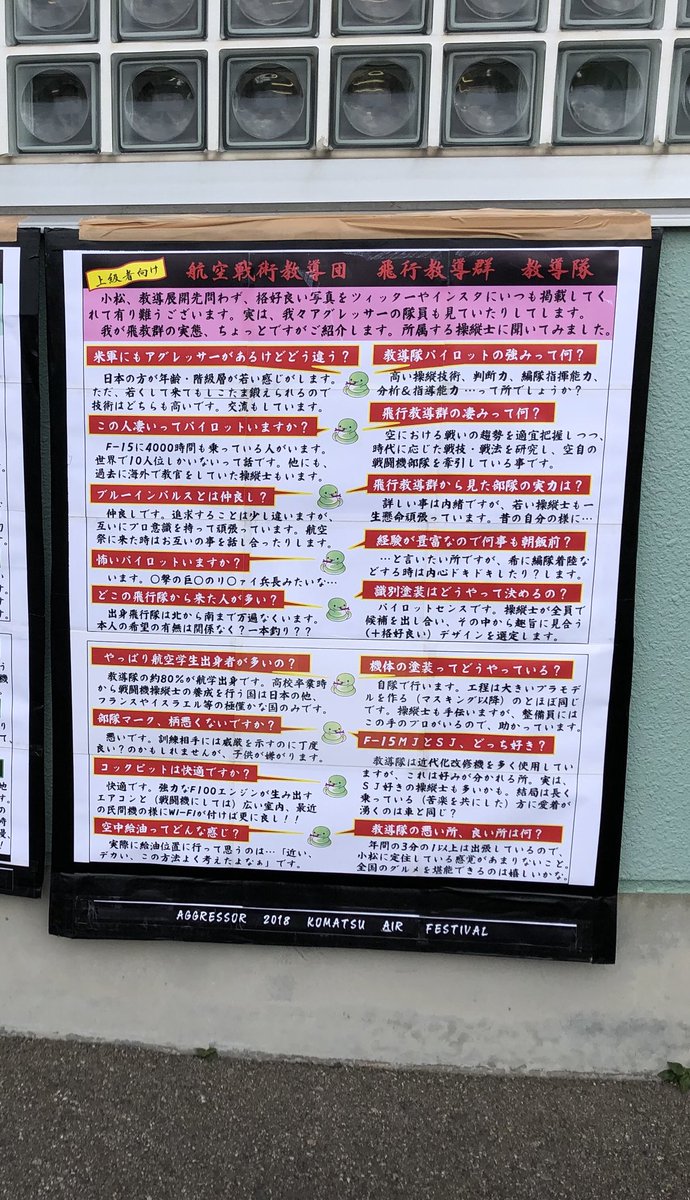 上級者向け
航空戦術教導団　飛行教導群　教導隊
小松、教導展開先問わず、格好良い写真をツィッターやインスタにいつも掲載してく
れて有り難うございます。実は、我々アグレッサーの隊員も見ていたりしてします。
我が飛教群の実態、ちょっとですがご紹介します。所属する操縦士に聞いてみました。
米軍にもアグレッサーがあるけどどう違う？
日本の方が年齢・階級層が若い感じがします。
ただ、若くして来てもしこたま鍛えられるので
技術はどちらも高いです。交流もしています。
この人凄いってパイロットいますか？
F-15に4000時間も乗っている人がいます。
世界で10人位しかいないって話です。他にも、
過去に海外で教官をしていた操縦士もいます。
ブルーインパルスとは仲良し？
仲良しです。追求することは少し違いますが、
互いにプロ意識を持って頑張っています。航空
祭に来た時はお互いの事を話し合ったりします。
怖いパイロットいますか？
います。〇撃の巨〇のり〇ァイ兵長みたいな…
どこの飛行隊から来た人が多い？
出身飛行隊は北から南まで万遍なくいます。
本人の希望の有無は関係なく？一本釣り？？
やっぱり航空学生出身者が多いの？
教導隊の約80％が航学出身です。高校卒業時
から戦闘機操縦士の養成を行う国は日本の他、
フランスやイスラエル等の極僅かな国のみです。
部隊マーク、柄悪くないですか？
悪いです。訓練相手には威厳を示すのに丁度
良い？のかもしれませんが、子供が嫌がります。
コックピットは快適ですか？
快適です。強力なF100エンジンが生み出す
エアコンと（戦闘機にしては）広い室内、最近
の民間機の様にWI-FIが付けば更に良し！！
空中給油ってどんな感じ？
実際に給油位置に行って思うのは…「近い、
デカい、この方法よく考えたよなぁ」です。
教導隊パイロットの強みって何？
高い操縦技術、判断力、編隊指揮能力、
分析&指導能力 …って所でしょうか？
飛行教導群の凄みって何？
空における戦いの趨勢を適宜把握しつつ、
時代に応じた戦技・戦法を研究し、空自の
戦闘機部隊を牽引している事です。
飛行教導群から見た部隊の実力は？
詳しい事は内緒ですが、若い操縦士も一
生懸命頑張っています。昔の自分の様に…
経験が豊富なので何事も朝飯前？
…と言いたい所ですが、希に編隊着陸な
どする時は内心ドキドキしたり？します。
識別塗装はどうやって決めるの？
パイロットセンスです。操縦士が全員で
候補を出し合い、その中から趣旨に見合う
（＋格好良い）デザインを選定します。
機体の塗装ってどうやっている？
自隊で行います。工程は大きいプラモデ
ルを作る（マスキング以降）のとほぼ同じ
です。操縦士も手伝いますが、整備員には
この手のプロがいるので、助かっています。
F-15MJとSJ、どっち好き？
教導隊は近代化改修機を多く使用してい
ますが、これは好みが分かれる所。実は、
SJ好きの操縦士も多いかも。結局は長く
乗っている（苦楽を共にした）方に愛着が
湧くのは車と同じ？
教導隊の悪い所、良い所は何？
年間の3分の1以上は出張しているので、
小松に定住している感覚があまりないこと。
全国のグルメを堪能できるのは嬉しいかな。
AGGRESSOR 2018 KOMATSU AIR FESTIVAL